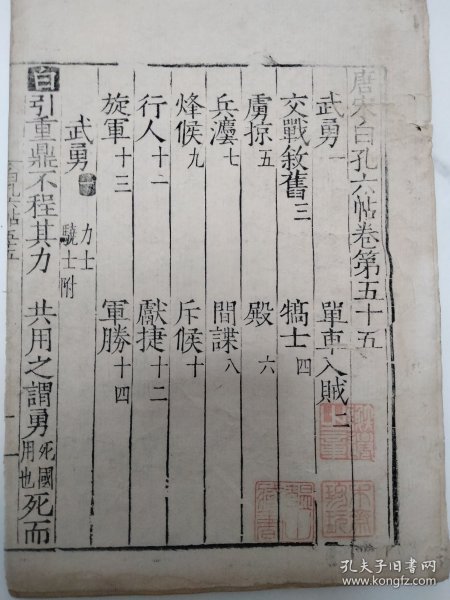 唐宋白孔六帖卷第五十五
武勇一 單車入賊二
交戰敘舊三 犒士四
虜掠五 殿六
兵塵七 間諜八
烽候九 斥候十
行人十一 獻捷十二
旋軍十三 軍勝十四
武勇一 力士驍士附
白 引重鼎不程其力 共用之謂勇死國用也死而
孔夫子旧书网
www.kongfz.com